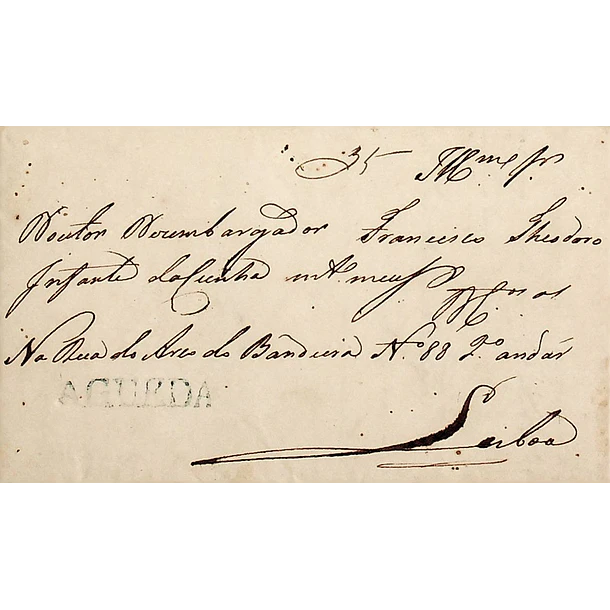 35 Illmo Sr
Doutor Dezembargador Francisco Theodoro
Infante da Cunha mto meu Sr
Na Rua do Arco do Bandeira No 88 2o andár
AGUEDA
Lisboa